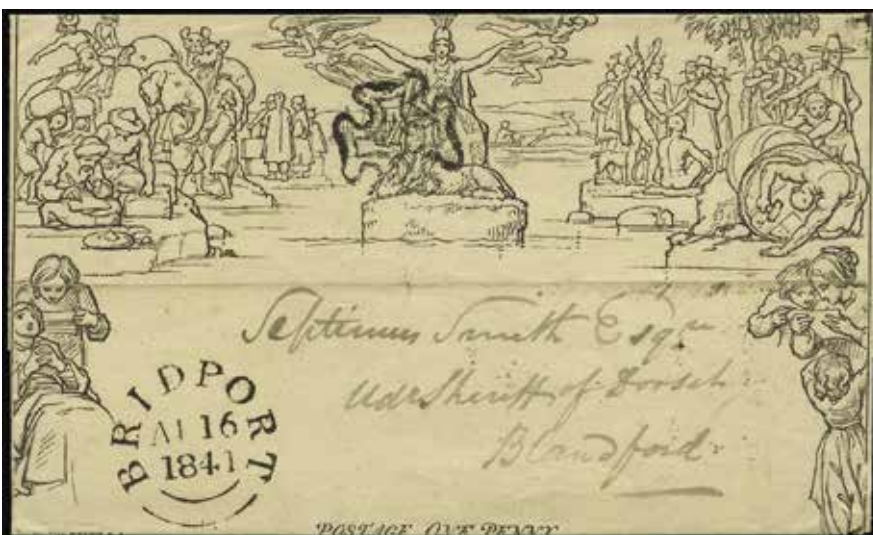 Septimus Smith Esqre
UdrSheriff of Dorset
Blandford
BRIDPORT
16
1841
POSTAGE ONE PENNY